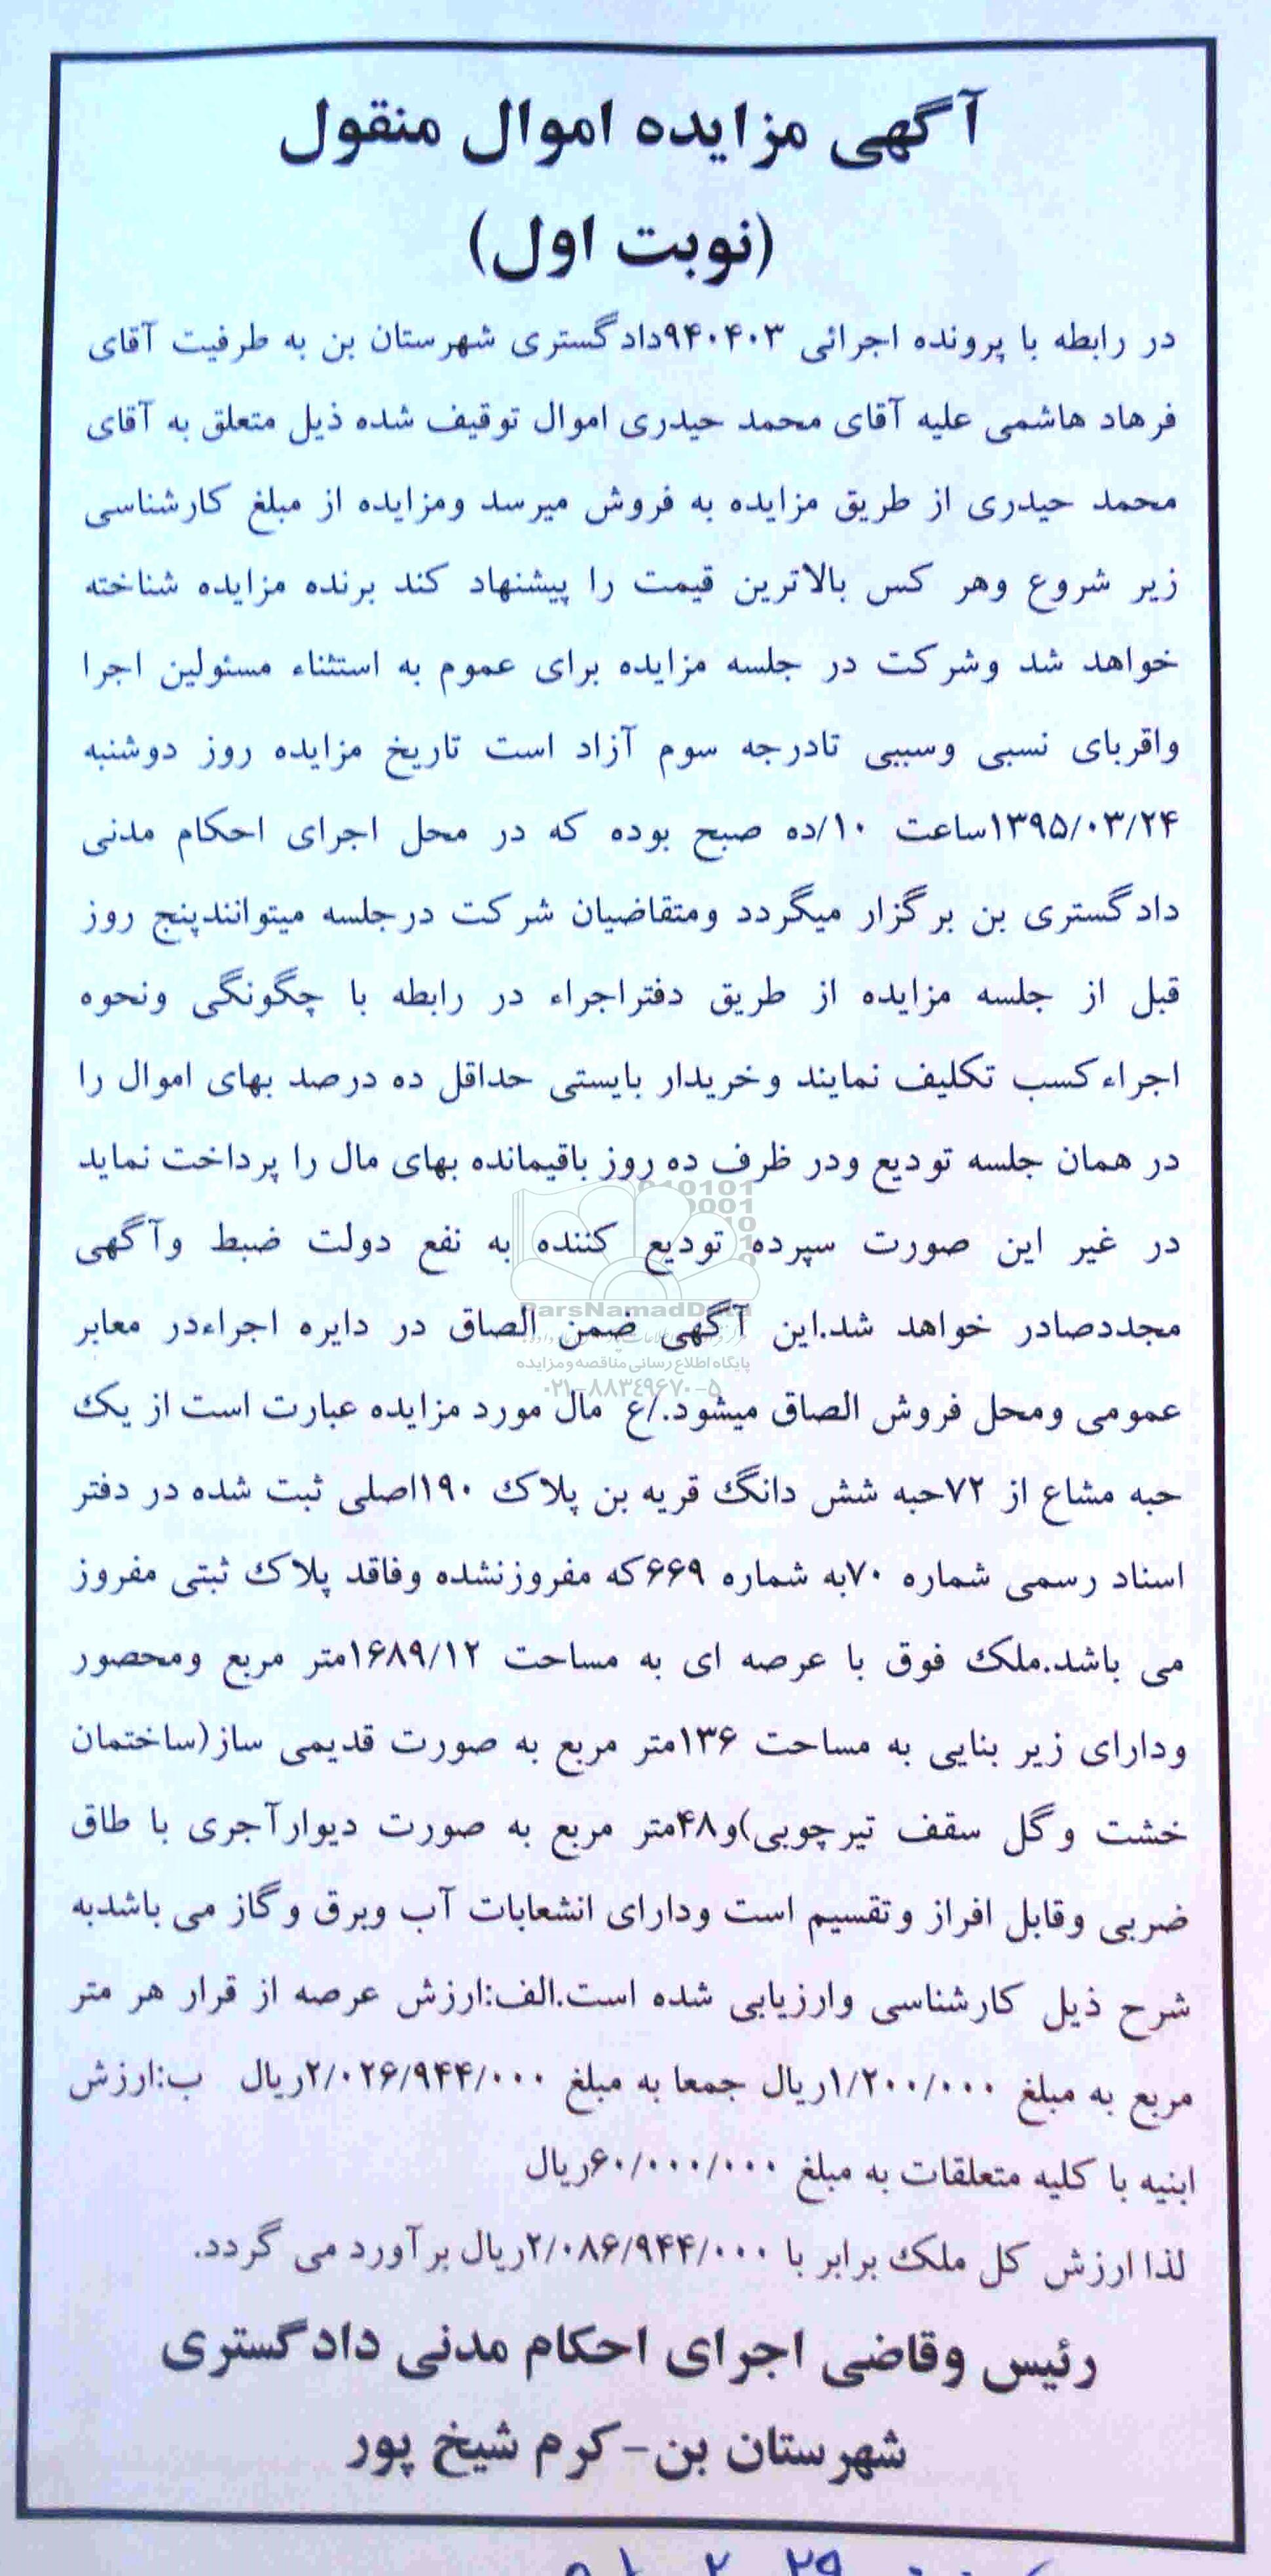 آگهی مزایده اموال منقول
(نوبت اول)
در رابطه با پرونده اجرائی ۹۴۰۴۰۳دادگستری شهرستان بن به طرفیت آقای
فرهاد هاشمی علیه آقای محمد حیدری اموال توقیف شده ذیل متعلق به آقای
محمد حیدری از طریق مزایده به فروش میرسد ومزایده از مبلغ کارشناسی
زیر شروع وهر کس بالاترین قیمت را پیشنهاد کند برنده مزایده شناخته
خواهد شد وشرکت در جلسه مزایده برای عموم به استثناء مسئولین اجرا
واقربای نسبی وسببی تادرجه سوم آزاد است تاریخ مزایده روز دوشنبه
۱۳۹۵/۰۳/۲۴ساعت ۱۰/ده صبح بوده که در محل اجرای احکام مدنی
دادگستری بن برگزار میگردد ومتقاضیان شرکت درجلسه میتوانندپنج روز
قبل از جلسه مزایده از طریق دفتراجراء در رابطه با چگونگی ونحوه
اجراءکسب تکلیف نمایند وخریدار بایستی حداقل ده درصد بهای اموال را
در همان جلسه تودیع ودر ظرف ده روز باقیمانده بهای مال را پرداخت نماید
در غیر این صورت سپرده تودیع کننده به نفع دولت ضبط وآگهی
مجددصادر خواهد شد.این آگهی ضمن الصاق در دایره اجراءدر معابر
عمومی ومحل فروش الصاق میشود./ع مال مورد مزایده عبارت است از یک
حبه مشاع از ۷۲حبه شش دانگ قریه بن پلاک ۱۹۰اصلی ثبت شده در دفتر
اسناد رسمی شماره ۷۰به شماره ۶۶۹که مفروزنشده وفاقد پلاک ثبتی مفروز
می باشد.ملک فوق با عرصه ای به مساحت ۱۶۸۹/۱۲متر مربع ومحصور
ودارای زیر بنایی به مساحت ۱۳۶متر مربع به صورت قدیمی ساز(ساختمان
خشت وگل سقف تیرچوبی)و۴۸متر مربع به صورت دیوارآجری با طاق
ضربی وقابل افراز وتقسیم است ودارای انشعابات آب وبرق وگاز می باشدبه
شرح ذیل کارشناسی وارزیابی شده است.الف:ارزش عرصه از قرار هر متر
مربع به مبلغ ۱/۲۰۰/۰۰۰ریال جمعا به مبلغ ۲/۰۲۶/۹۴۴/۰۰۰ریال ب:ارزش
ابنیه با کلیه متعلقات به مبلغ ۶۰/۰۰۰/۰۰۰ریال
لذا ارزش کل ملک برابر با ۲/۰۸۶/۹۴۴/۰۰۰ریال برآورد می گردد.
رئیس وقاضی اجرای احکام مدنی دادگستری
شهرستان بن-کرم شیخ پور
ParsNamadData
پایگاه اطلاع رسانی مناقصه و مزایده
۰۲۱-۸۸۳۴۹۶۷۰-۵